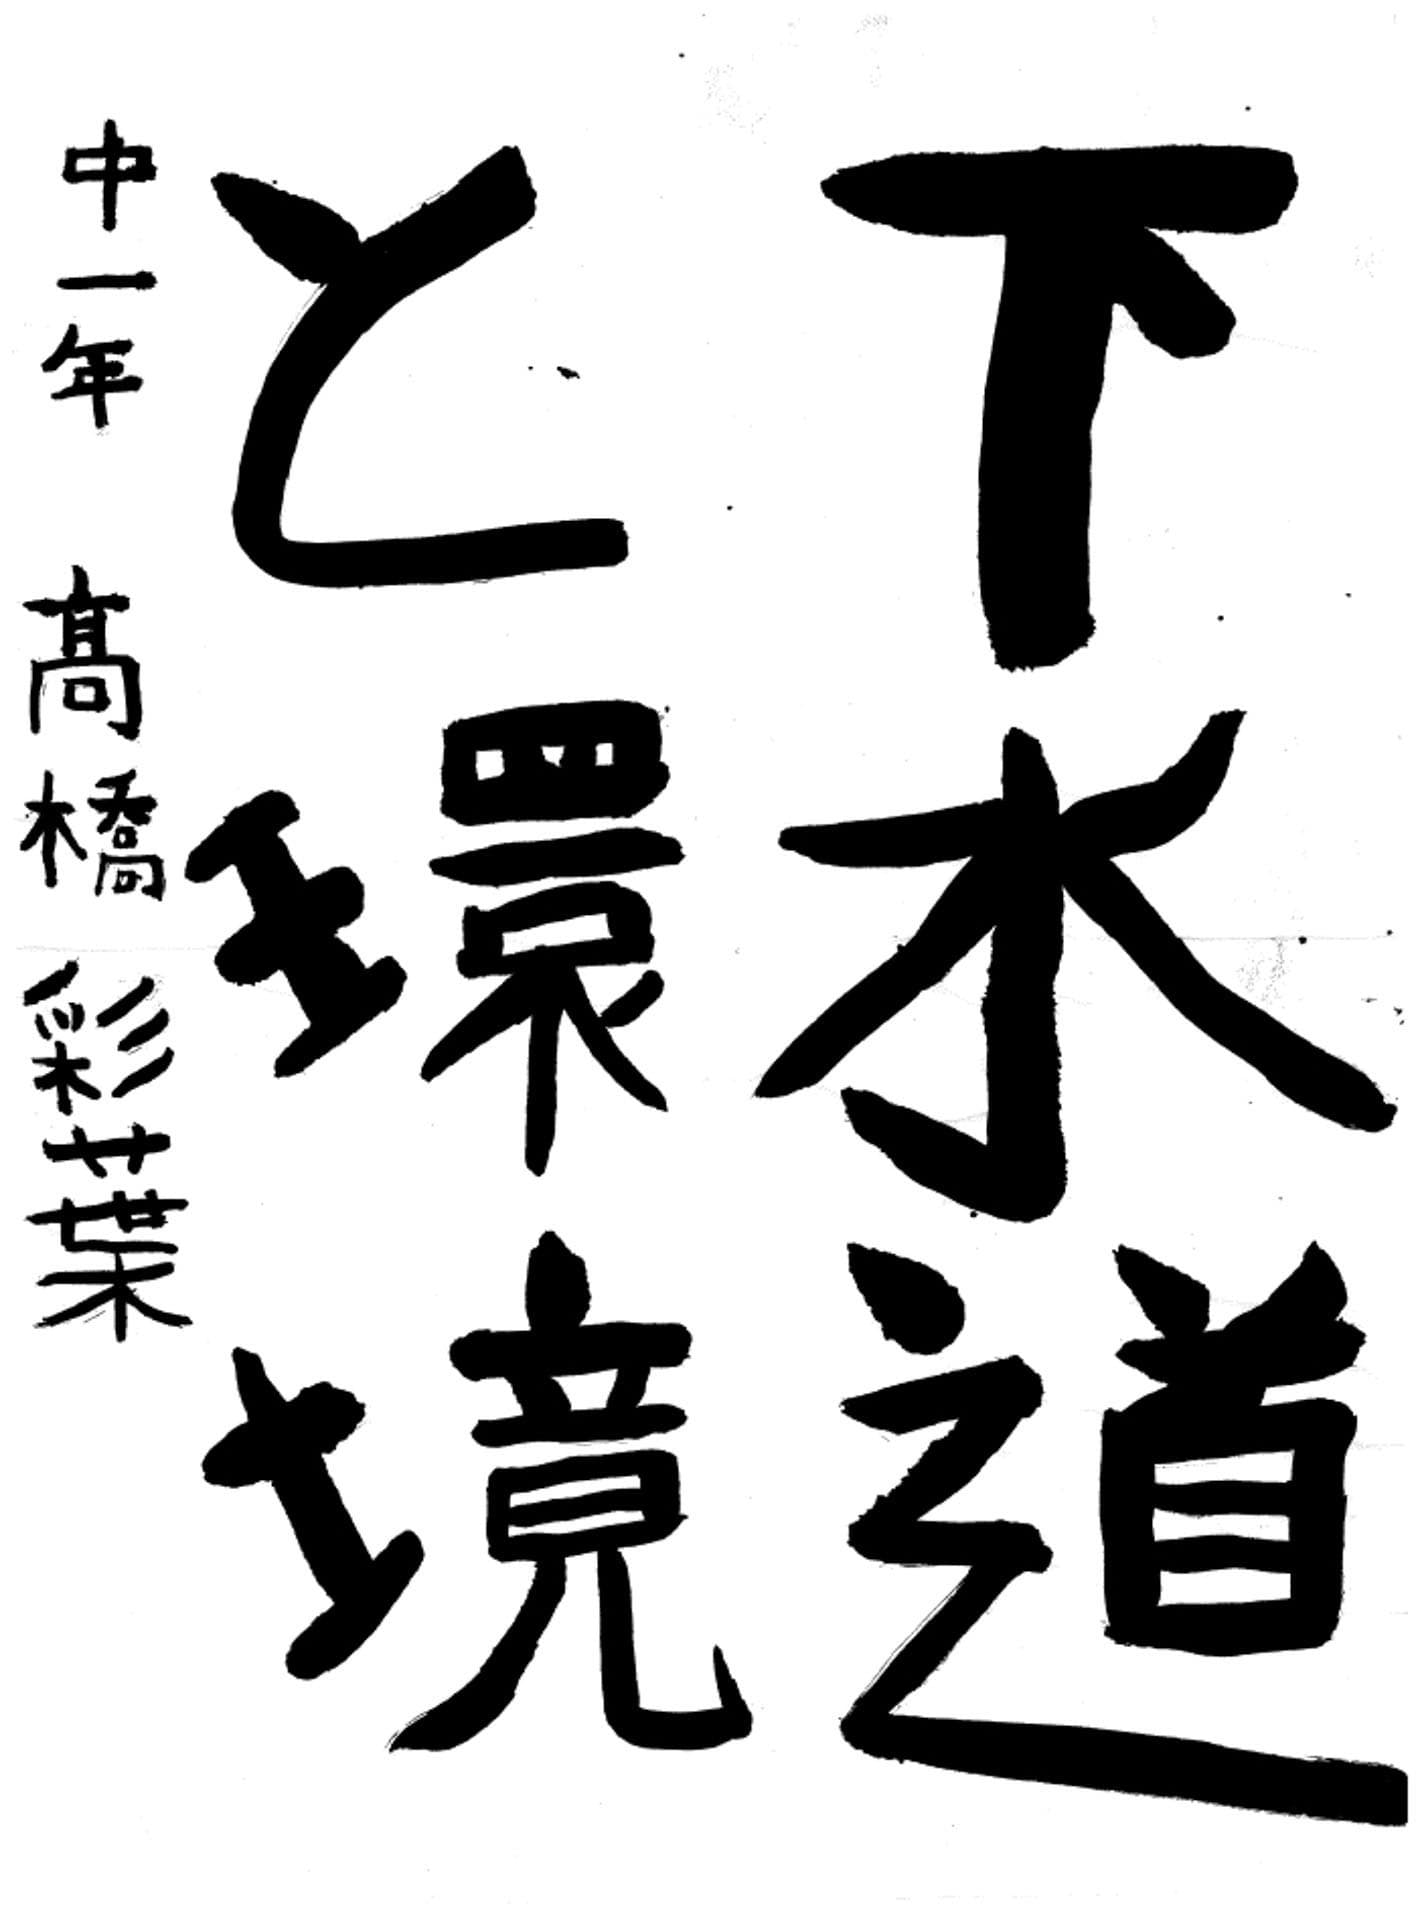 下水道
と環境
中一年 髙橋彩葉